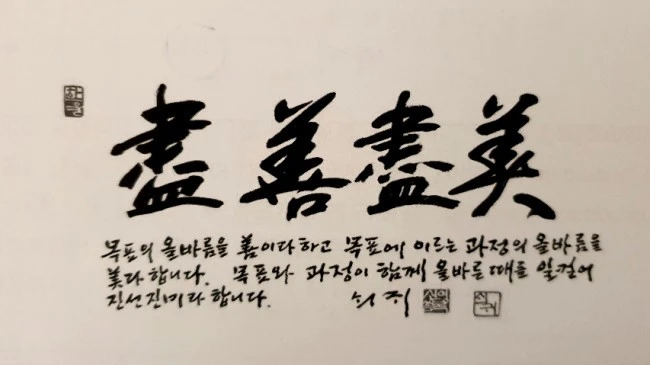 盡善盡美
목표의 올바름을 善이라 하고 목표에 이르는 과정의 올바름을
美라 합니다. 목표와 과정이 함께 올바른 때를 일컬어
진선진미라 합니다.